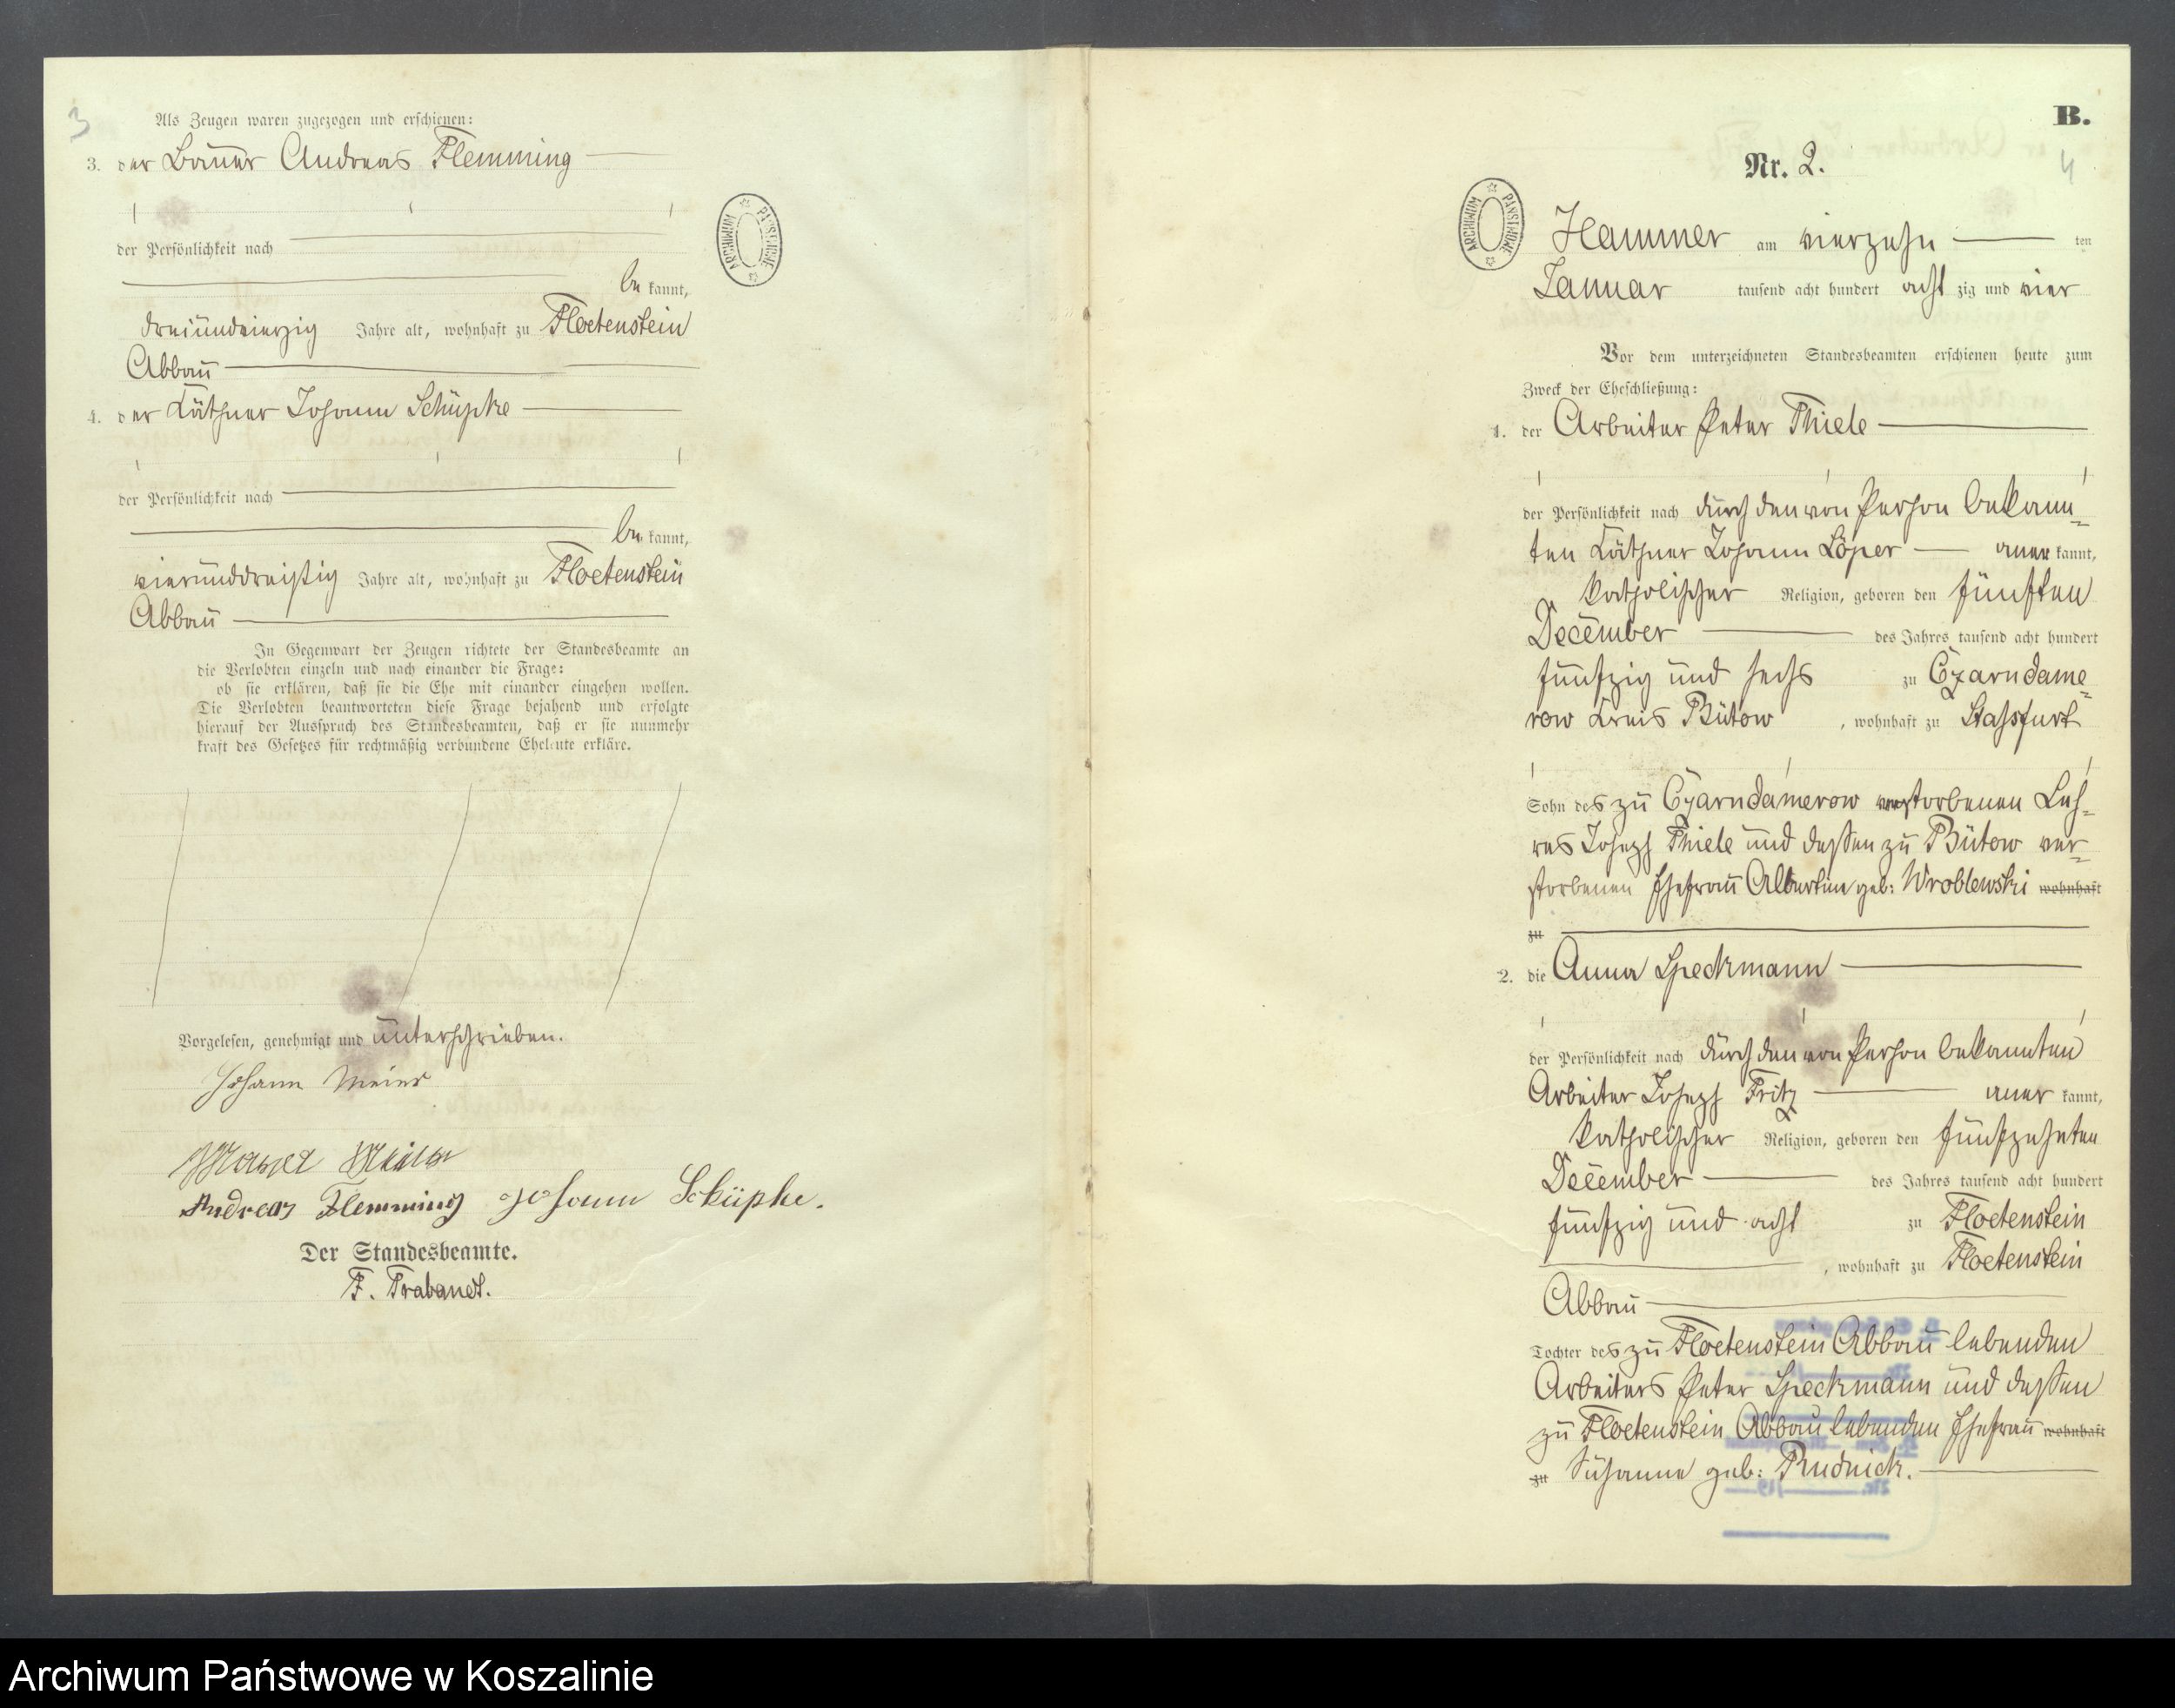 3
Als Zeugen waren zugezogen und erschienen:
3. der Bauer Andreas Flemming
der Persönlichkeit nach
be kannt,
dreiundvierzig Jahre alt, wohnhaft zu Floetenstein
Abbau
4. der Käthner Johann Schüpke
der Persönlichkeit nach
be kannt,
vierunddreißig Jahre alt, wohnhaft zu Floetenstein
Abbau
In Gegenwart der Zeugen richtete der Standesbeamte an
die Verlobten einzeln und nach einander die Frage:
ob sie erklären, daß sie die Ehe mit einander eingehen wollen.
Die Verlobten beantworteten diese Frage bejahend und erfolgte
hierauf der Ausspruch des Standesbeamten, daß er sie nunmehr
kraft des Gesetzes für rechtmäßig verbundene Eheleute erkläre.
Vorgelesen, genehmigt und unterschrieben.
Johann Meier
Andreas Flemming Johann Schüpke.
Der Standesbeamte.
F. Trabandt.
ARCHIWUM PAŃSTWOWE
B.
Nr. 2.
4
ARCHIWUM PAŃSTWOWE
Hammer am vierzehn ten
Januar tausend acht hundert acht zig und vier
Vor dem unterzeichneten Standesbeamten erschienen heute zum
Zweck der Eheschließung:
1. der Arbeiter Peter Thiele
der Persönlichkeit nach durch den von Person bekann=
ten Käthner Johann Löper aner kannt,
katholischer Religion, geboren den fünften
December des Jahres tausend acht hundert
fünfzig und sechs zu Czarndame=
row Kreis Bütow, wohnhaft zu Stassfurt
Sohn des zu Czarndamerow verstorbenen Leh=
rers Joseph Thiele und dessen zu Bütow ver=
storbenen Ehefrau Albertine geb: Wroblewski wohnhaft
zu
2. die Anna Speckmann
der Persönlichkeit nach durch den von Person bekannten
Arbeiter Joseph Fritz aner kannt,
katholischer Religion, geboren den fünfzehnten
December des Jahres tausend acht hundert
fünfzig und acht zu Floetenstein
, wohnhaft zu Floetenstein
Abbau
Tochter des zu Floetenstein Abbau lebenden
Arbeiters Peter Speckmann und dessen
zu Floetenstein Abbau lebenden Ehefrau wohnhaft
zu Susanne geb: Rudnick.
Archiwum Państwowe w Koszalinie